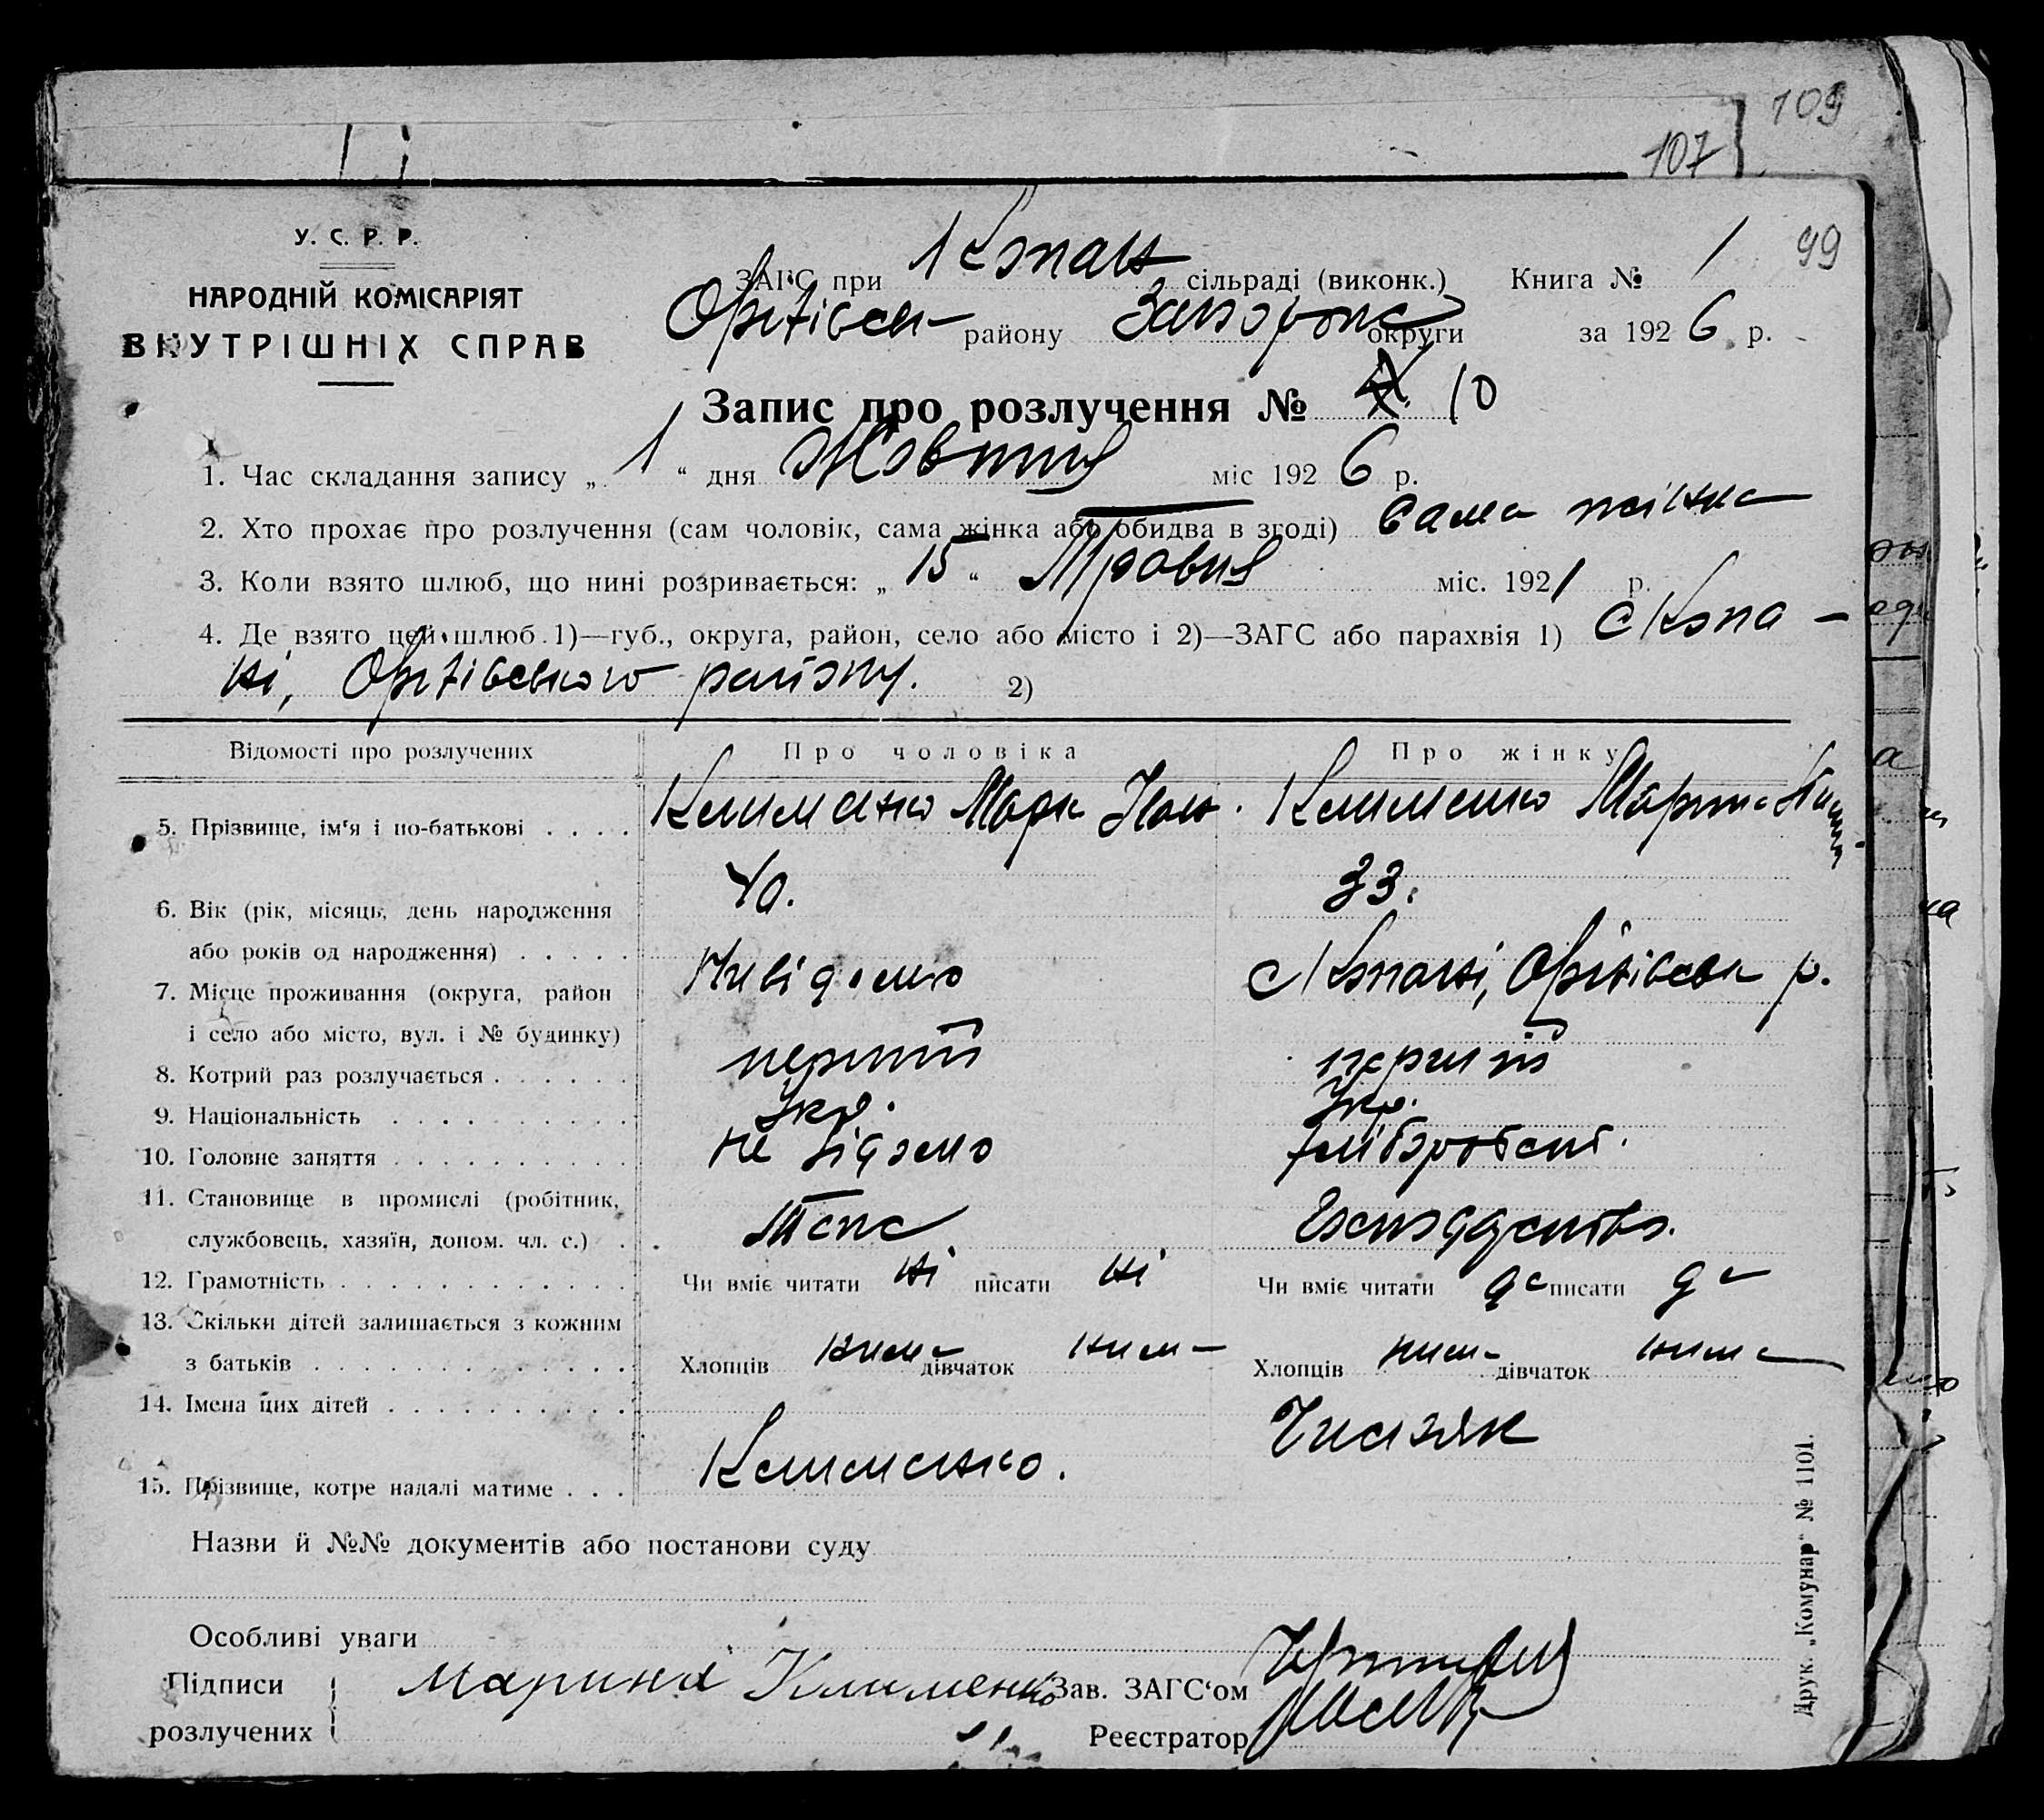 109
107
99
У. С. Р. Р.
НАРОДНІЙ КОМІСАРІЯТ
ВНУТРІШНІХ СПРАВ
ЗАГС при 1 Копан сільраді (виконк.) Книга № 1
Оріхівськ району Запоріж округи за 1926 р.
Запис про розлучення № 10
1. Час складання запису „ 1 “ дня Жовтня міс 1926 р.
2. Хто прохає про розлучення (сам чоловік, сама жінка або обидва в згоді) Сама жінка
3. Коли взято шлюб, що нині розривається: „ 15 “ Травня міс. 1921 р.
4. Де взято цей шлюб 1)—губ., округа, район, село або місто і 2)—ЗАГС або парахвія 1) с Копа-
ні, Оріхівського району. 2)
Відомості про розлучених Про чоловіка Про жінку
5. Прізвище, ім‘я і по-батькові . . . . Клименко Марк Іван. Клименко Марина
6. Вік (рік, місяць, день народження 40. 33.
або років од народження) . . . . .
7. Місце проживання (округа, район Невідомо с Копані, Оріхівськ р.
і село або місто, вул. і № будинку)
8. Котрий раз розлучається . . . . . . перший перший
9. Національність . . . . . . . . . . Укр. Укр.
10. Головне заняття . . . . . . . . . . не відомо хліборобств.
11. Становище в промислі (робітник,
службовець, хазяїн, допом. чл. с.) . .
12. Грамотність . . . . . . . . . . . . Чи вміє читати ні писати ні Чи вміє читати да писати да
13. Скільки дітей залишається з кожним
з батьків . . . . . . . . . . . . . Хлопців нима дівчаток нима Хлопців нима дівчаток нима
14. Імена цих дітей . . . . . . . . . .
15. Прізвище, котре надалі матиме . . . Клименко. Чисзяк
Назви й №№ документів або постанови суду
Особливі уваги
Підписи Марина Клименко Зав. ЗАГС‘ом
розлучених Реєстратор
Друк. „Комунар“ № 1101.